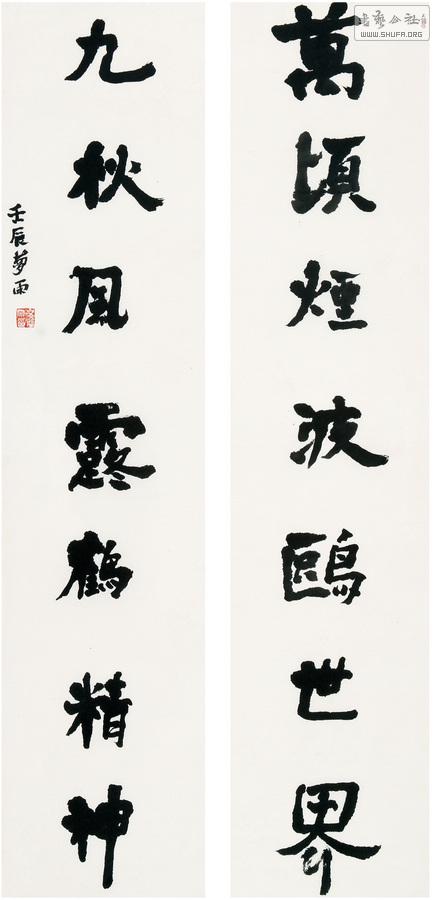 萬頃煙波鷗世界
九秋風露鶴精神
壬辰夢雨
書藝公社
WWW.SHUFA.ORG